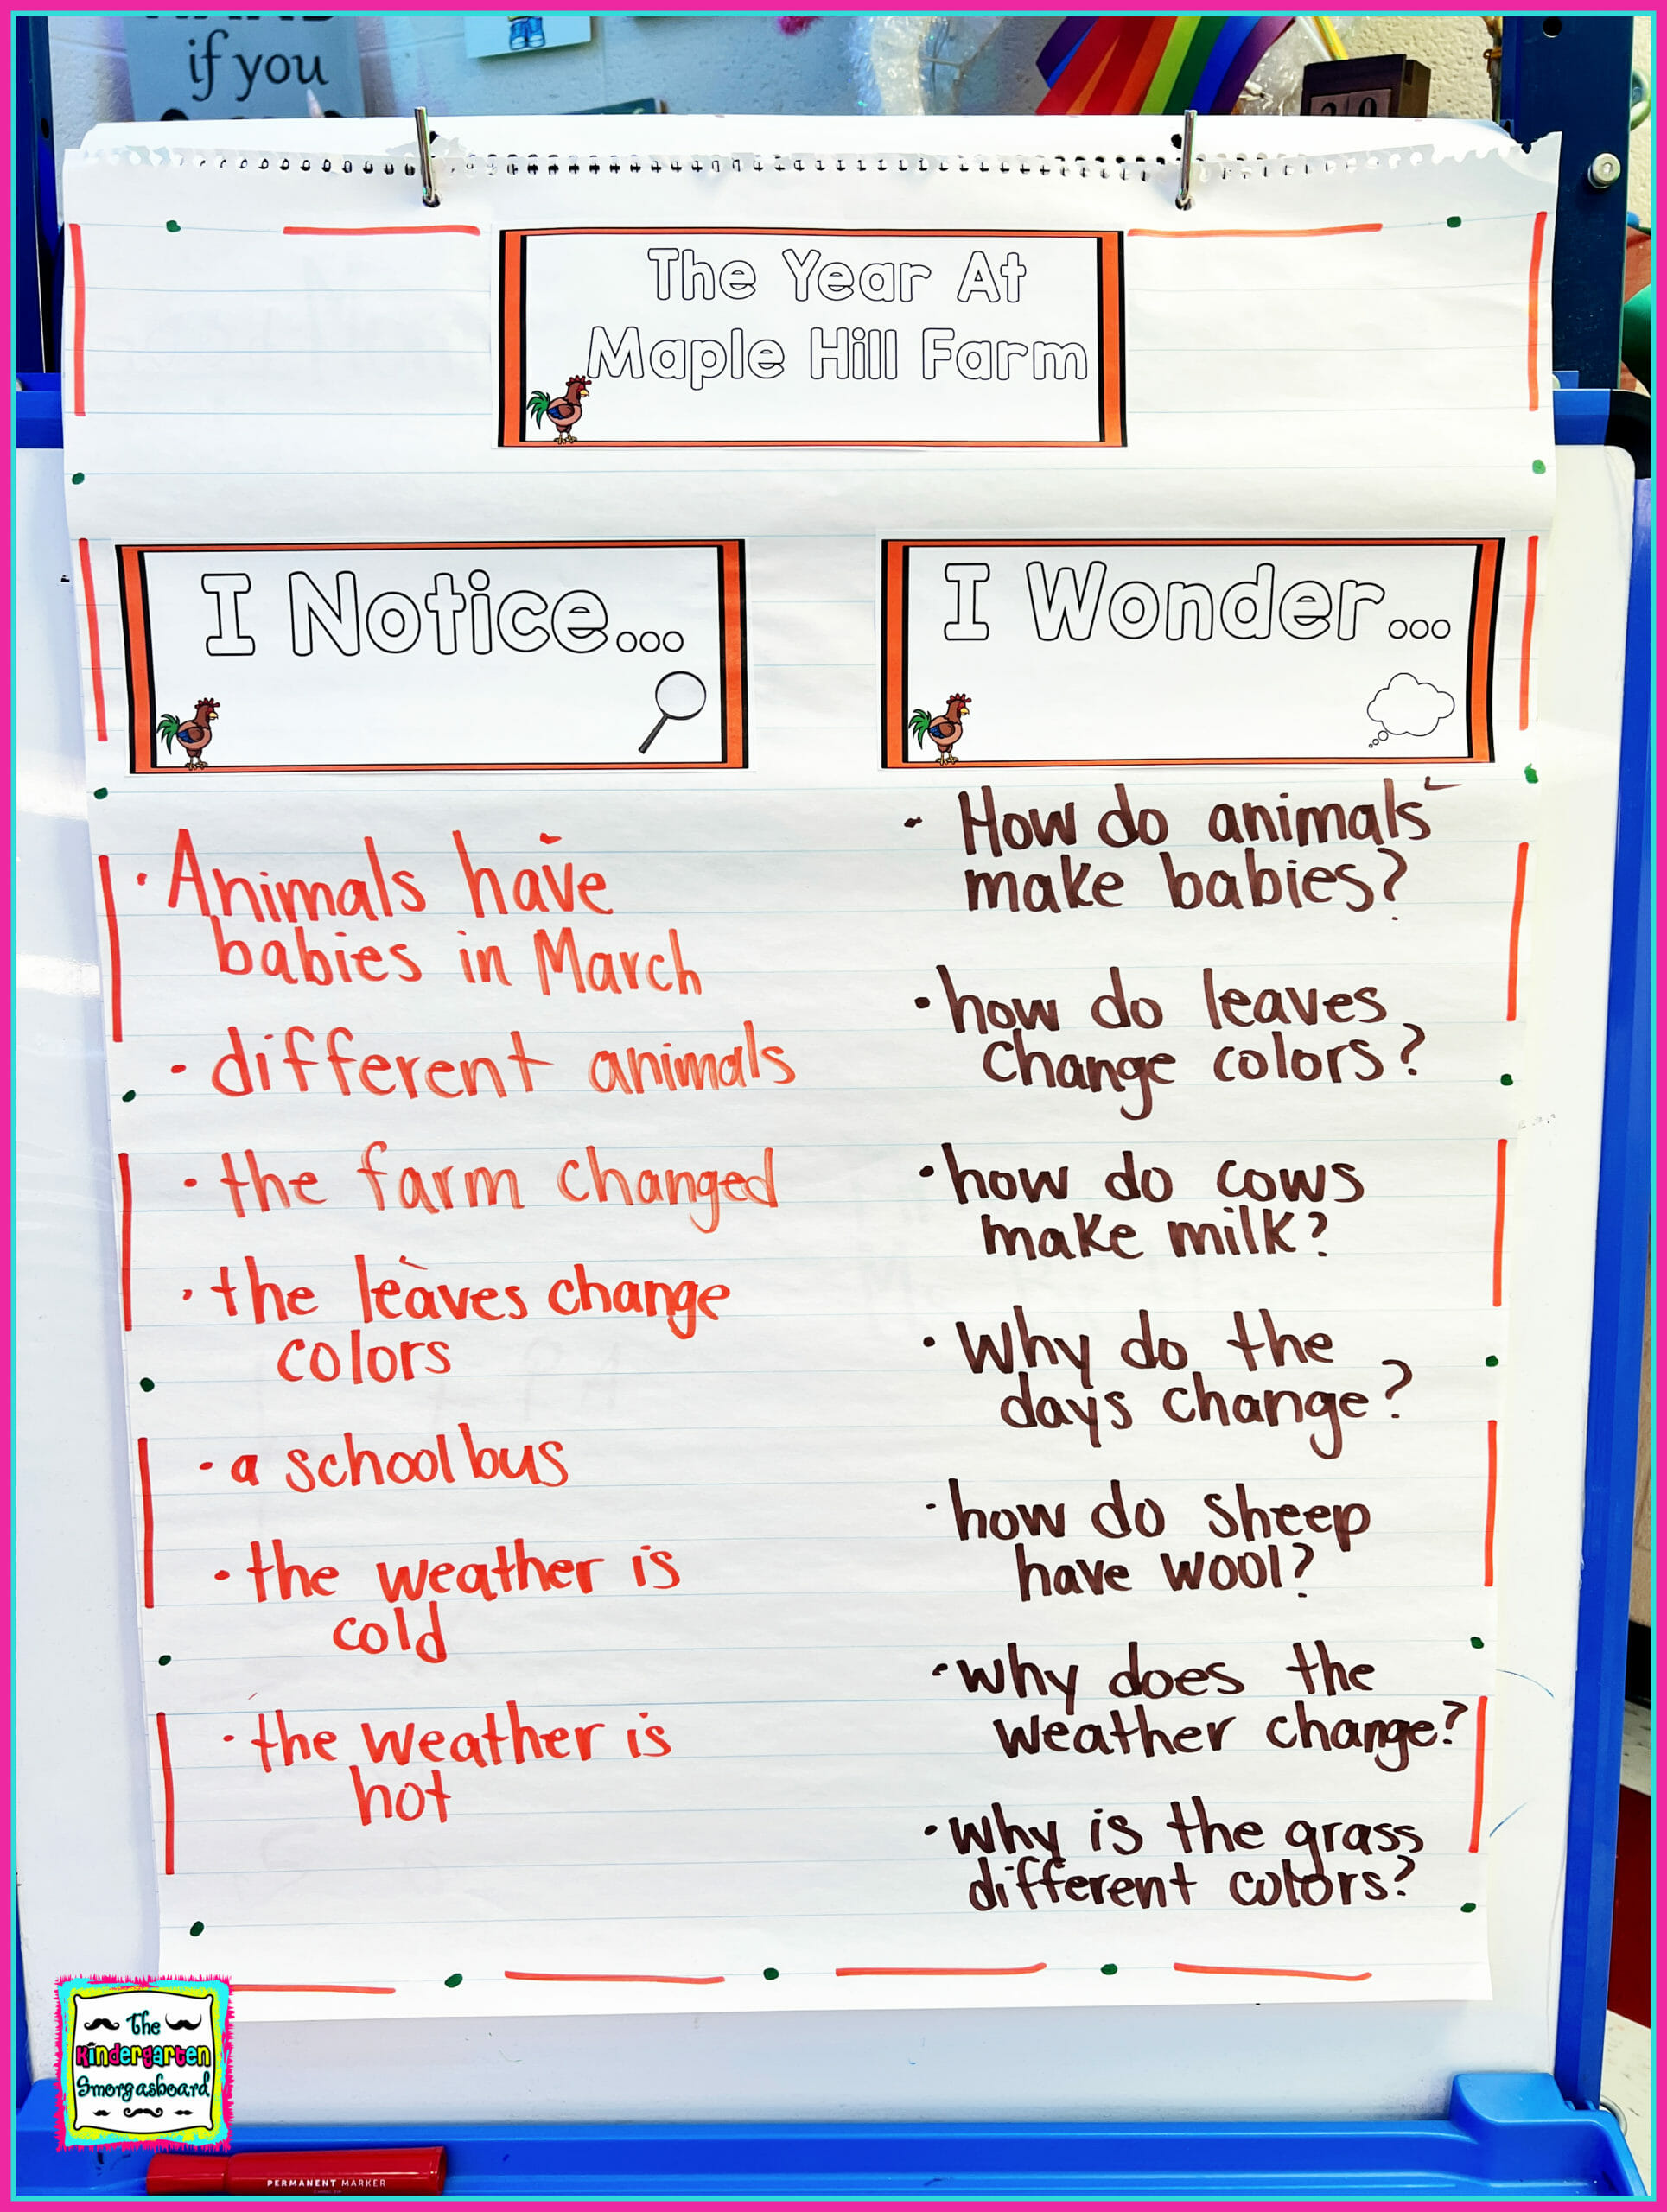 if you
The Year At
Maple Hill Farm
I Notice...
· Animals have
babies in March
· different animals
· the farm changed
· the leaves change
colors
· a school bus
· the weather is
cold
· the weather is
hot
I Wonder...
· How do animals
make babies?
· how do leaves
change colors?
· how do cows
make milk?
· Why do the
days change?
· how do sheep
have wool?
· why does the
weather change?
· why is the grass
different colors?
The
Kindergarten
Smorgasboard
PERMANENT MARKER